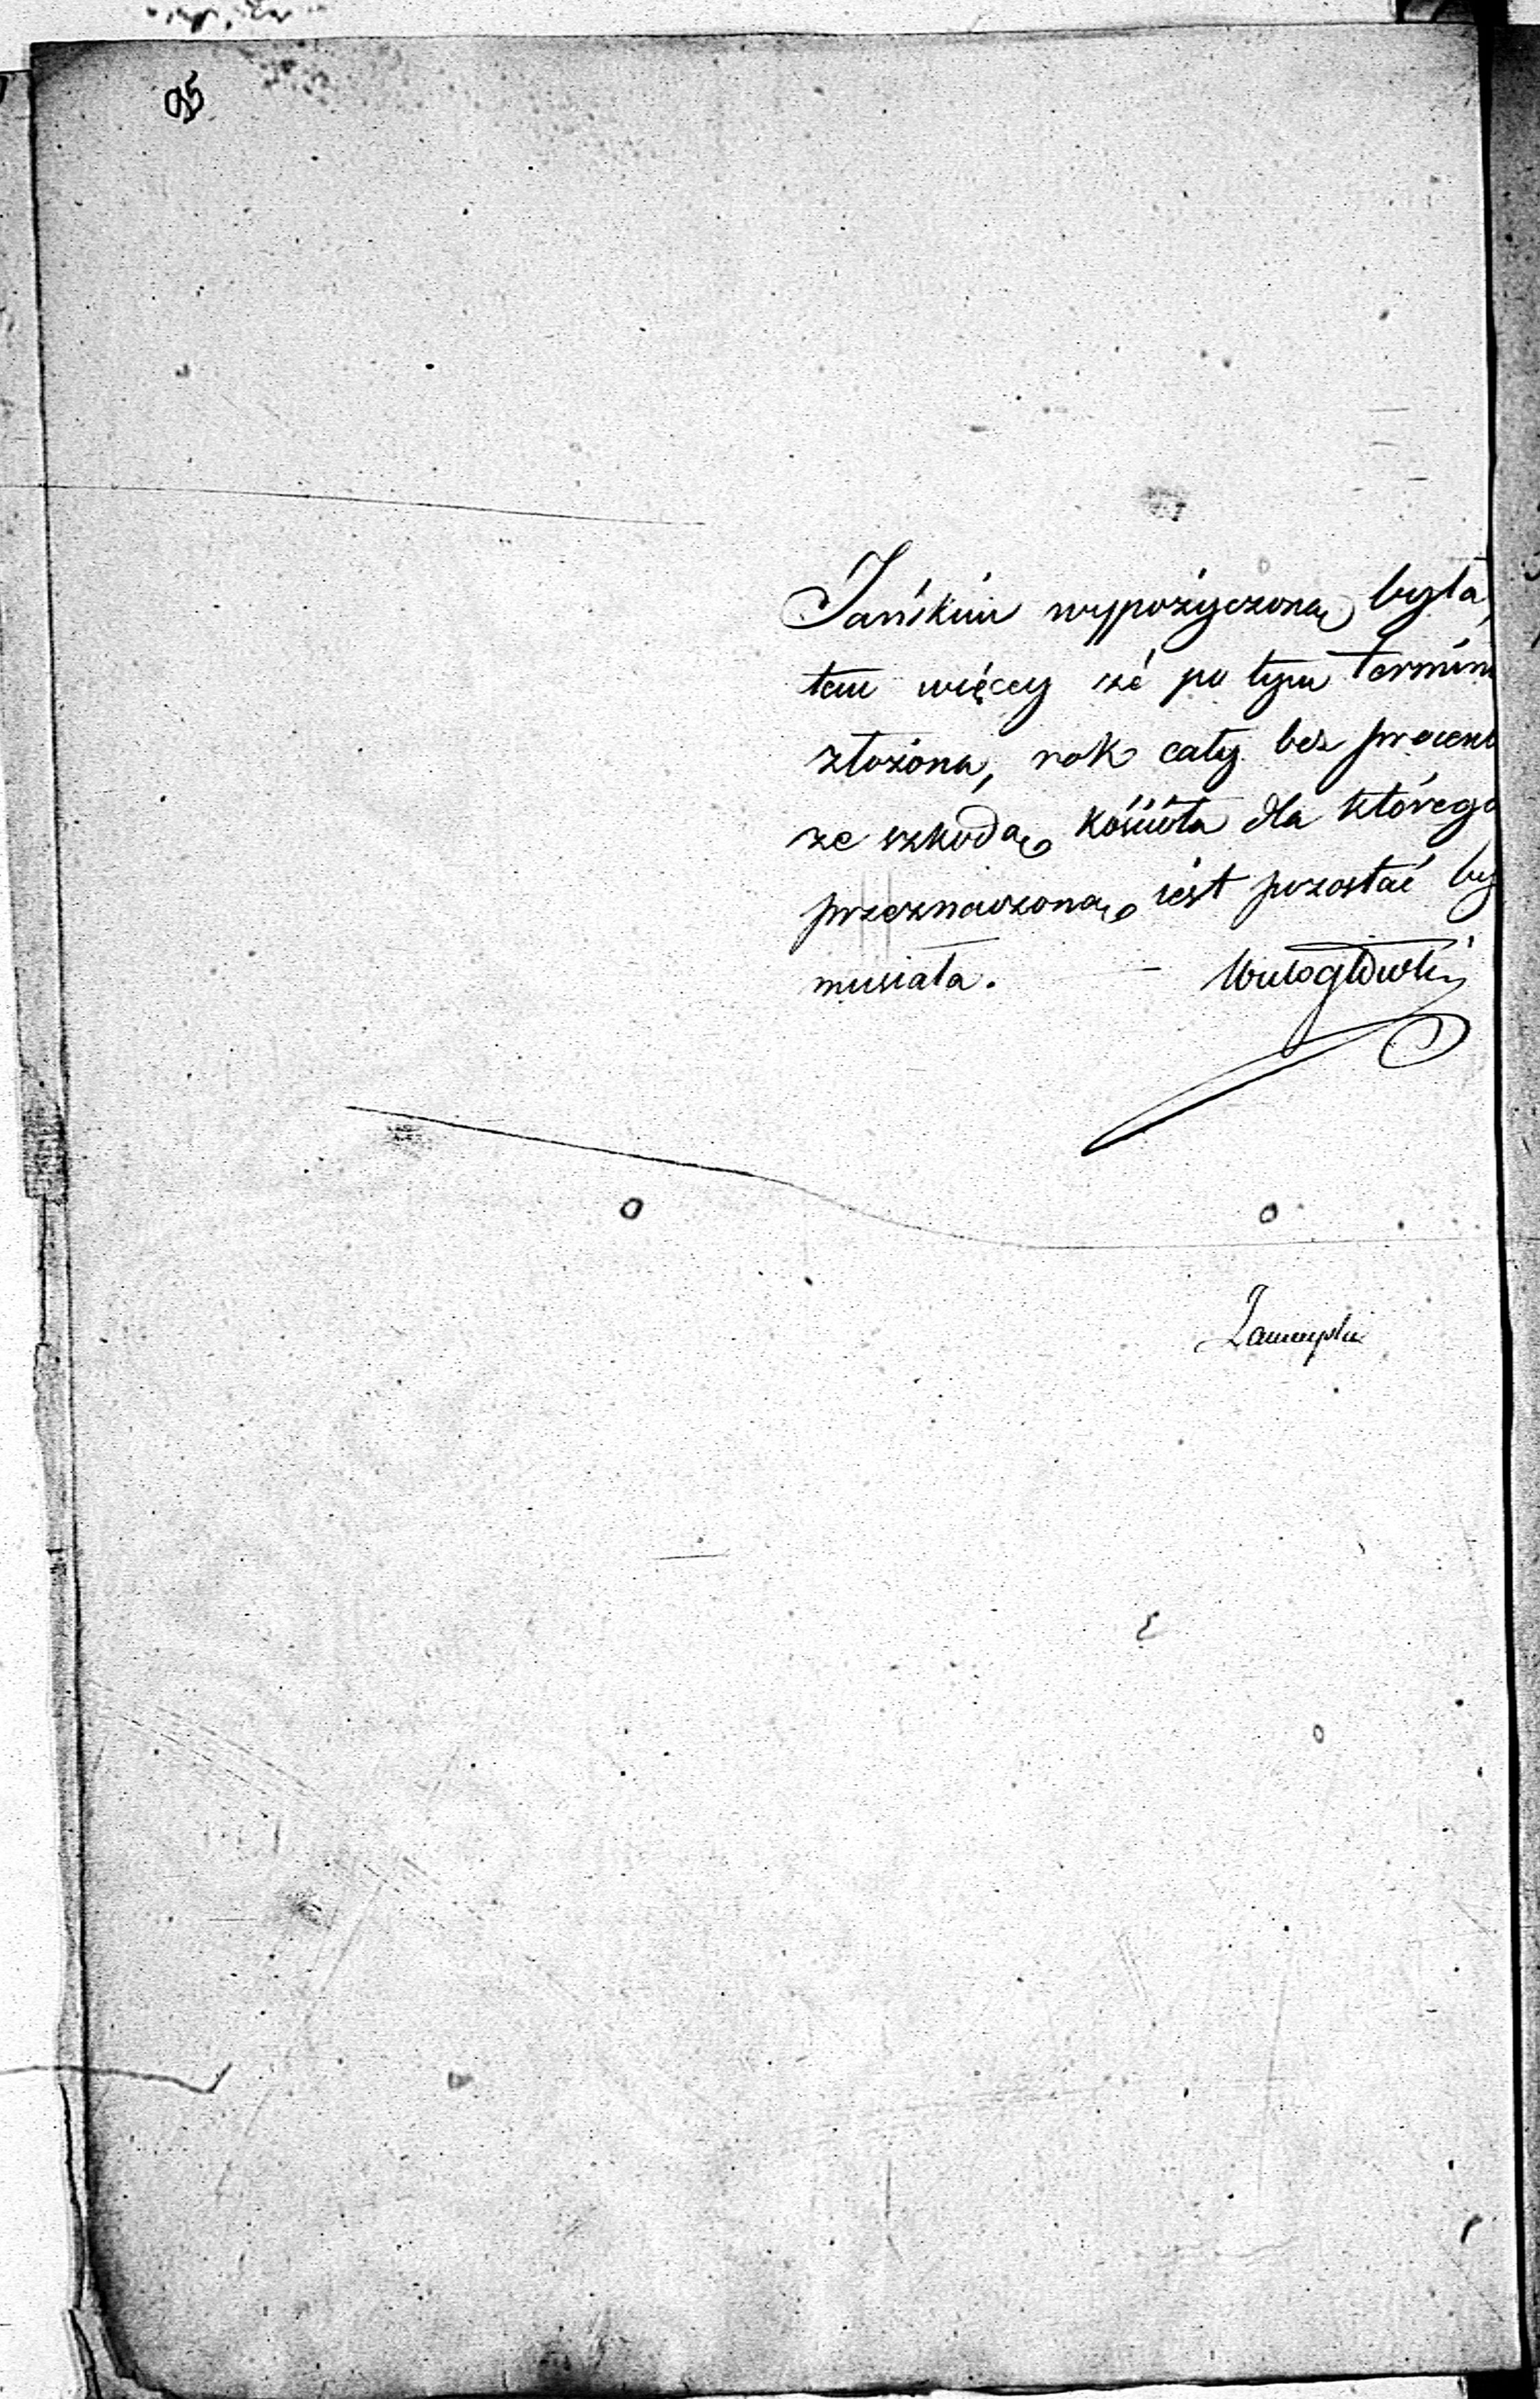 95
Jańskim wypożyczoną była,
tem więcey że po tym termin
złożona, rok cały bez procent
ze szkodą kościoła dla którego
przeznaczoną iest pozostać by
musiała. — Wielogłowski